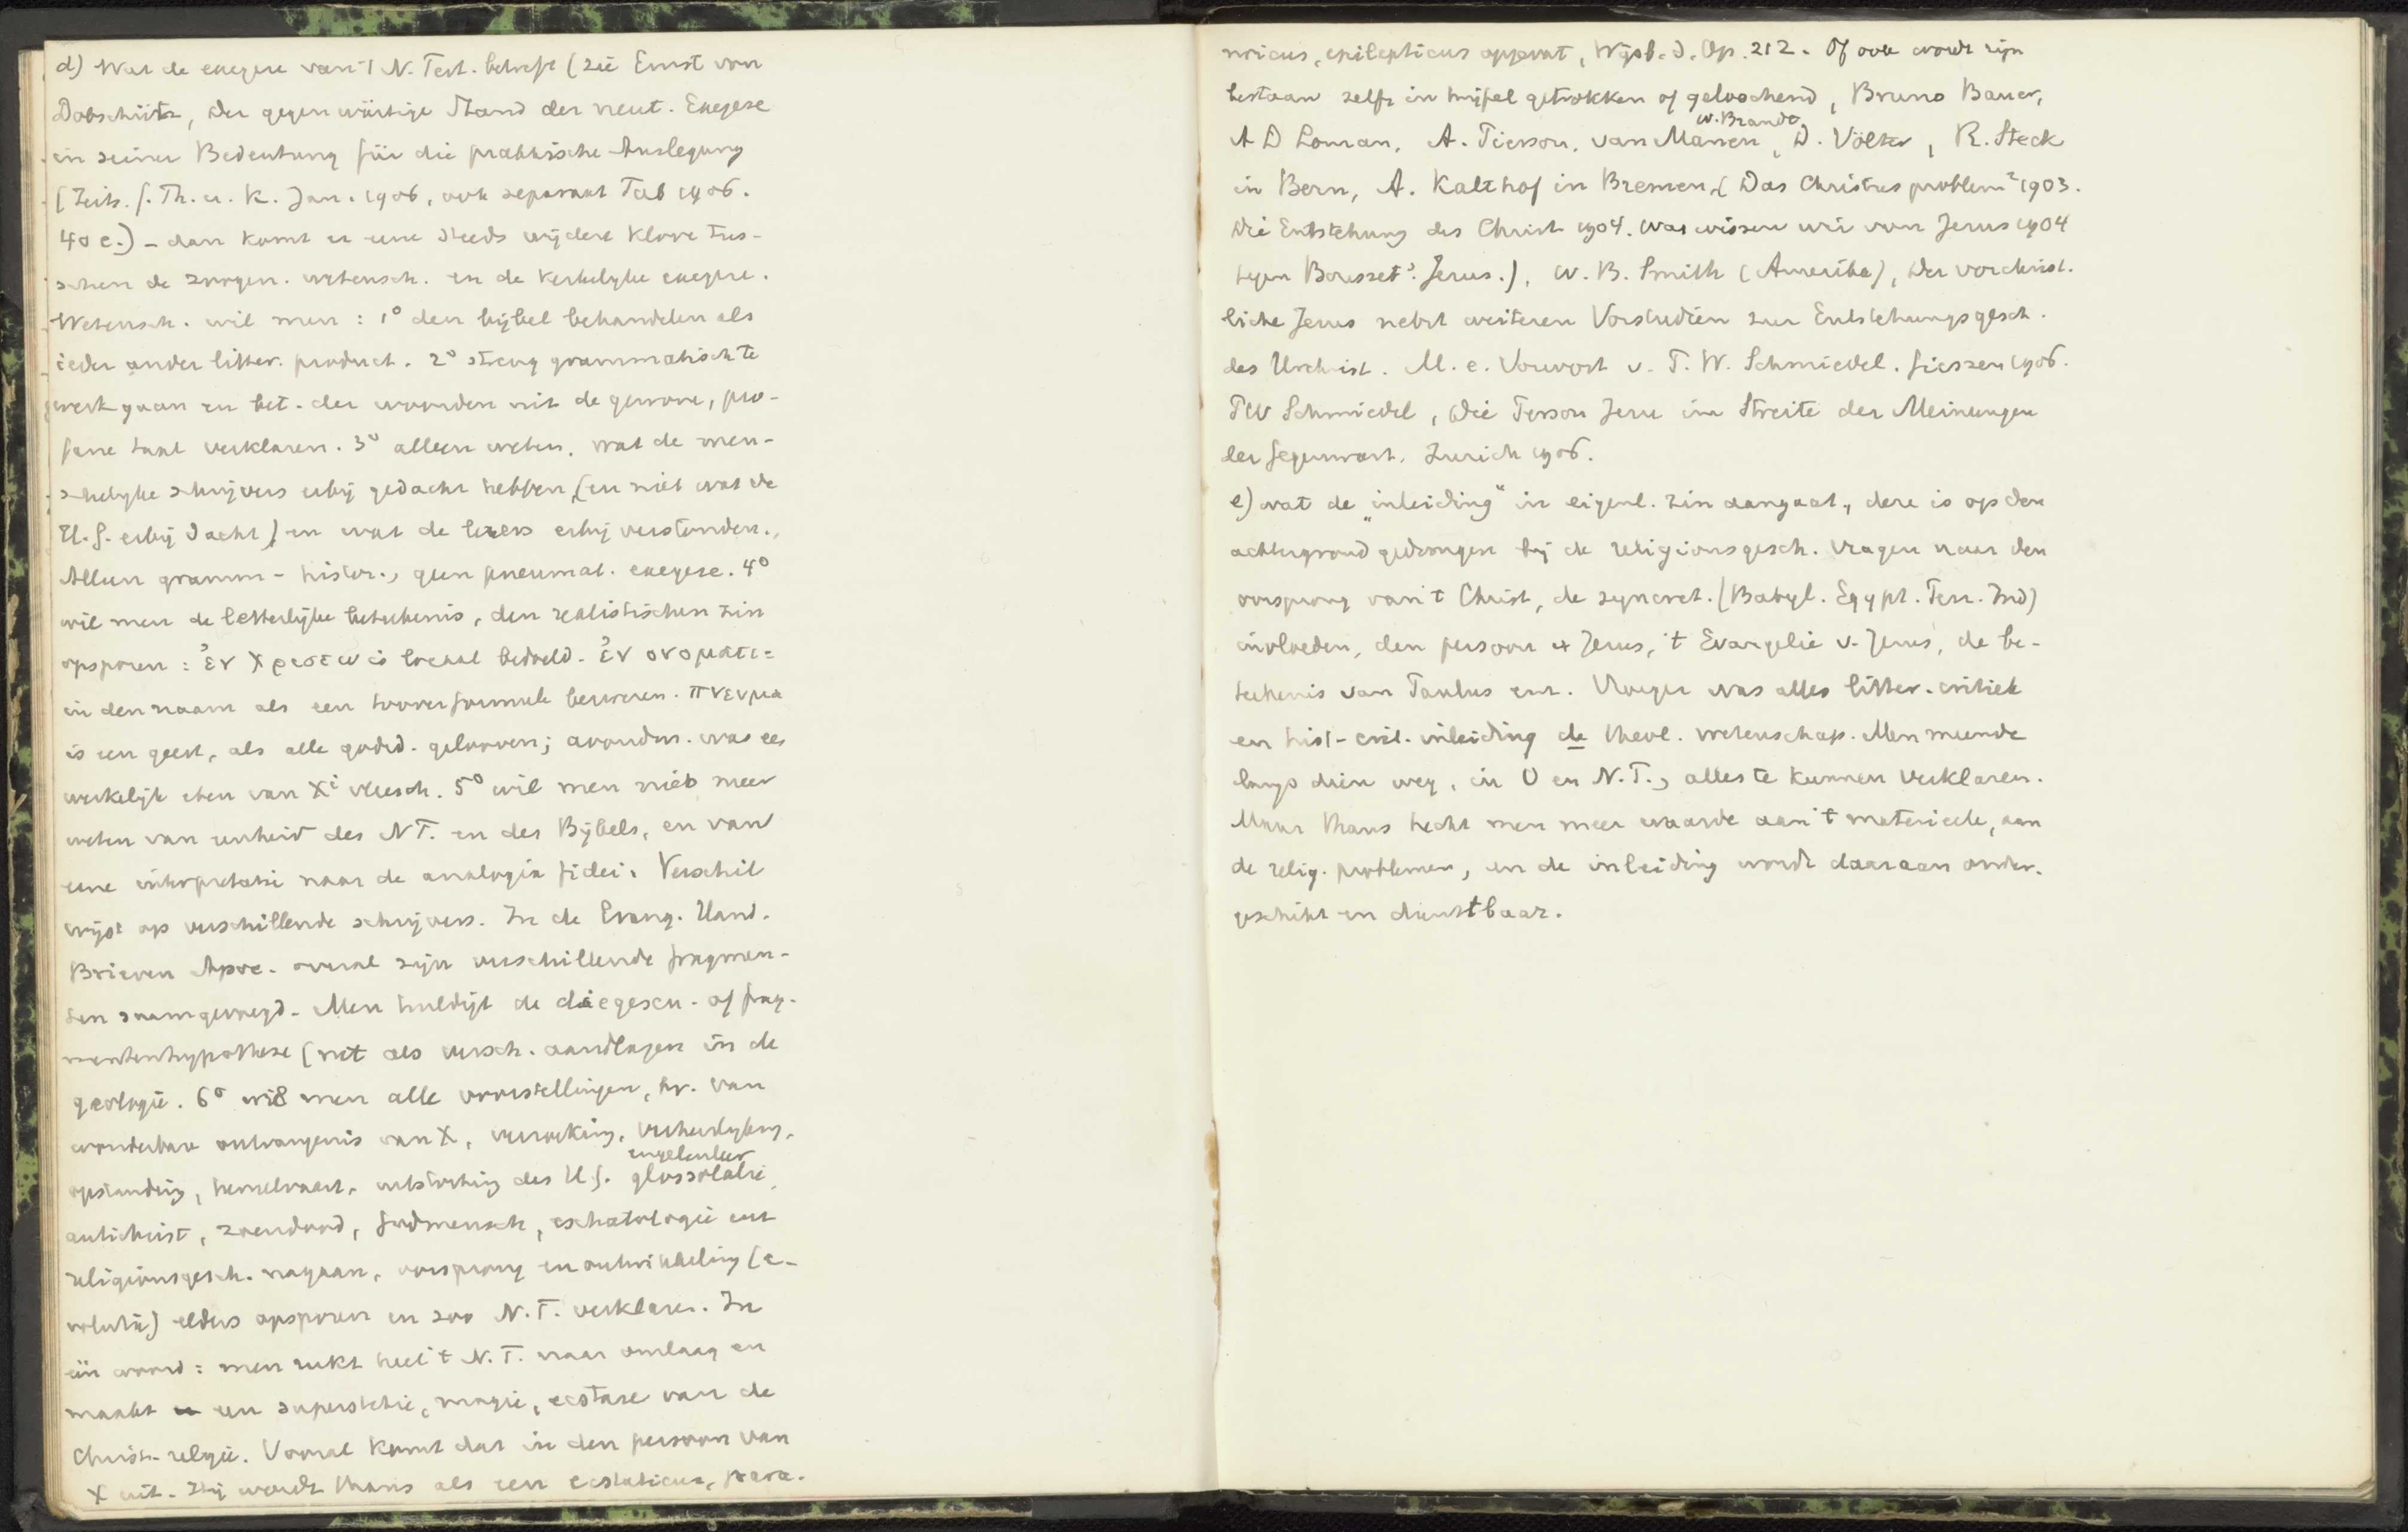 d) Wat de exegese van 't N. Test. betreft (zie Ernst von
Dobschütz, Der gegenwärtige Stand der neut. Exegese
in seiner Bedeutung für die praktische Auslegung
(Zeits. f. Th. u. K. Jan. 1906, ook separaat Tüb 1906.
40 c.) - dan komt er eene steeds wijdere klove tus-
schen de zoogen. wetensch. en de kerkelijke exegese.
Wetensch. wil men: 1° den bijbel behandelen als
ieder ander litter. product. 2° streng grammatisch te
werk gaan en bet. der woorden uit de gewone, pro-
fane taal verklaren. 3° alleen weten, wat de men-
schelijke schrijvers erbij gedacht hebben (en niet wat de
H. G. erbij dacht) en wat de lezers erbij verstonden.
Alleen gramm-histor., geen pneumat. exegese. 4°
wil men de letterlijke beteekenis, den realistischen zin
opsporen: ἐν Χριστω is locaal bedoeld. ἐν ονοματι =
in den naam als een tooverformule bezweren. πνευμα
is een geest, als alle godsd. gelooven; avondm. was een
werkelijk eten van Xⁱ vleesch. 5° wil men niets meer
weten van eenheid des N T. en des Bijbels, en van
eene interpretatie naar de analogia fidei. Verschil
wijst op verschillende schrijvers. In de Evang. Hand.
Brieven Apoc. overal zijn verschillende fragmen-
ten saamgevoegd. Men huldigt de diegesen- of frag-
mentenhypothese (net als versch. aardlagen in de
geologie. 6° wil men alle voorstellingen, bv. van
wonderbare ontvangenis van X, verzoeking, verheerlijking,
opstanding, hemelvaart, uitstorting des H. G. glossolalie,
engelenleer
antichrist, zoendood, Godmensch, eschatologie enz
religionsgesch. nagaan, oorsprong en ontwikkeling (e-
volutie) elders opsporen en zoo N. T. verklaren. In
één woord: men rukt heel 't N. T. naar omlaag en
maakt een superstitie, magie, ecstase van de
Christ. religie. Vooral komt dat in den persoon van
X uit. Hij wordt thans als een ecstaticus, para-
noicus, epilepticus opgevat, Wijsb. d. Op. 212. Of ook wordt zijn
bestaan zelfs in twijfel getrokken of geloochend, Bruno Bauer,
W. Brandt,
A D Loman, A. Pierson, van Manen, D. Völter, R. Steck
in Bern, A. Kalthof in Bremen, (Das Christusproblem² 1903.
Die Entstehung des Christ 1904. Was wissen wir von Jesus 1904
tegen Bousset's Jesus.), W. B. Smith (Amerika), Der vorchrist-
liche Jesus nebst weiteren Vorstudien zur Entstehungsgesch.
des Urchrist. M. e. Vorwort v. P. W. Schmiedel. Giessen 1906.
P W Schmiedel, Die Person Jesu im Streite der Meinungen
der Gegenwart. Zurich 1906.
e) wat de „inleiding“ in eigenl. zin aangaat, deze is op den
achtergrond gedrongen bij de religionsgesch. vragen naar den
oorsprong van 't Christ, de syncret. (Babyl. Egypt. Perz. Ind)
invloeden, den persoon v Jezus, 't Evangelie v. Jezus, de be-
teekenis van Paulus enz. Vroeger was alles litter. critiek
en hist-crit. inleiding de theol. wetenschap. Men meende
langs dien weg, in O en N. T., alles te kunnen verklaren.
Maar thans hecht men meer waarde aan 't materieele, aan
de relig. problemen, en de inleiding wordt daaraan onder-
geschikt en dienstbaar.